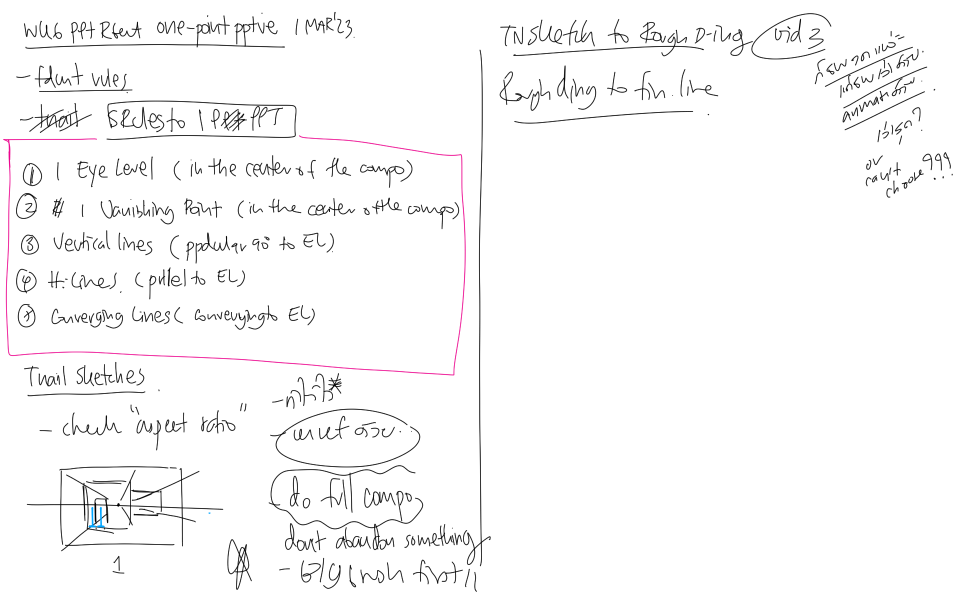 WK6 PPT Rcent one-point pptive 1 MAR'23
- fdmt rules
- 5 Rules to 1 P PPT
① 1 Eye Level (in the center of the compo)
② 1 Vanishing Point (in the center of the compo)
③ Vertical lines (ppdular 90° to EL)
④ H-Lines (prllel to EL)
⑤ Converging Lines (converging to EL)
Tnail Sketches
- check "aspect ratio"
- do full compo
dont abandon something
- first
1
TN sketch to Rough D-ing vid 3
Rough ding to fin. line
or
can't
choose ???